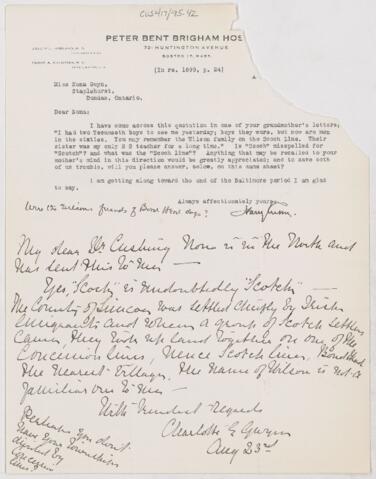 CUS417/95.42
PETER BENT BRIGHAM HOS
721 HUNTINGTON AVENUE
BOSTON 17, MASS.
[In re. 1899, p. 24]
Miss Nona Gwyn,
Staplehurst,
Dundas, Ontario.
Dear Nona:
I have come across this quotation in one of your grandmother's letters:
"I had two Tecumseth boys to see me yesterday; boys they were, but now are men
in the sixties. You may remember the Wilson family on the Scoch line. Their
sister was my only S S teacher for a long time." Is "Scoch" misspelled for
"Scotch"? and what was "Scoch line"? Anything that may be recalled to your
mother's mind in this direction would be greatly appreciated; and to save both
of us trouble, will you please answer, below, on this same sheet?
I am getting along toward the end of the Baltimore period I am glad
to say.
Always affectionately yours,
Were the Wilsons friends of Bond Head days?
My dear Dr Cushing Nona is in the North and
has sent this to me —
Yes, "Scoch" is undoubtedly "Scotch" —
The County of Simcoe was settled chiefly by Irish
Emigrants and when a group of Scotch settlers
came, they took up land together on one of the
Concession lines, hence Scotch line. Bond Head
the nearest village. The name of Wilson is not
familiar to me —
With kindest regards
Charlotte E Gwyn
Aug 23rd
Perhaps you don't
have your townships
divided by
Concession
lines?